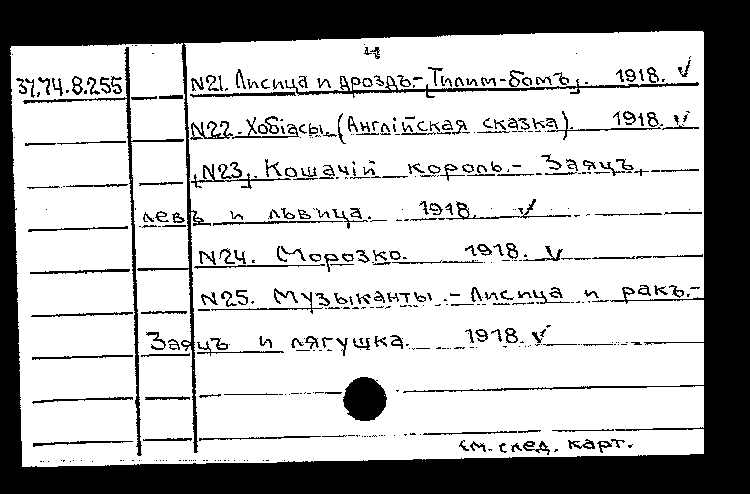 4
37.74.8.255 N21. Лисица и дроздъ.-[Тилим-бомъ]. 1918. ✓
N22. Хобіасы. (Англійская сказка). 1918. ✓
[N23]. Кошачій король.- Заяцъ,
левъ и львица. 1918. ✓
N24. Морозко. 1918. ✓
N25. Музыканты.- Лисица и ракъ.-
Заяцъ и лягушка. 1918. ✓
см. след. карт.